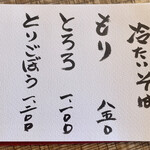 冷たいそば
もり 八五〇
とろろ 一、一〇〇
とりごぼう 一、二〇〇